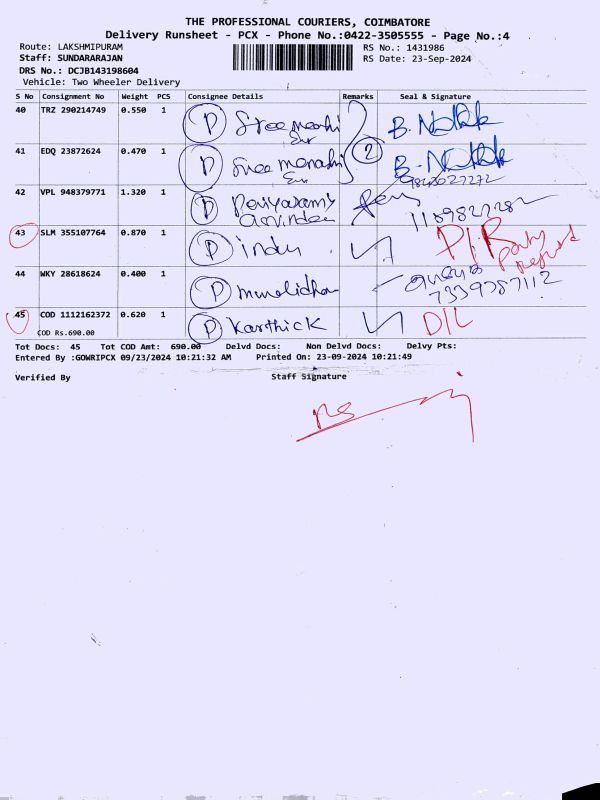 THE PROFESSIONAL COURIERS, COIMBATORE
Delivery Runsheet - PCX - Phone No.:0422-3505555 - Page No.:4
Route: LAKSHMIPURAM RS No.: 1431986
Staff: SUNDARARAJAN RS Date: 23-Sep-2024
DRS No.: DCJB143198604
Vehicle: Two Wheeler Delivery
S No Consignment No Weight PCS Consignee Details Remarks Seal & Signature
40 TRZ 290214749 0.550 1 P Sree
2
41 EDQ 23872624 0.470 1 P Sree
42 VPL 948379771 1.320 1 P
43 SLM 355107764 0.870 1 P indu P/R party
44 WKY 28618624 0.400 1 P
7339787112
45 COD 1112162372 0.620 1 P Karthick D/L
COD Rs.690.00
Tot Docs: 45 Tot COD Amt: 690.00 Delvd Docs: Non Delvd Docs: Delvy Pts:
Entered By :GOWRIPCX 09/23/2024 10:21:32 AM Printed On: 23-09-2024 10:21:49
Verified By Staff Signature